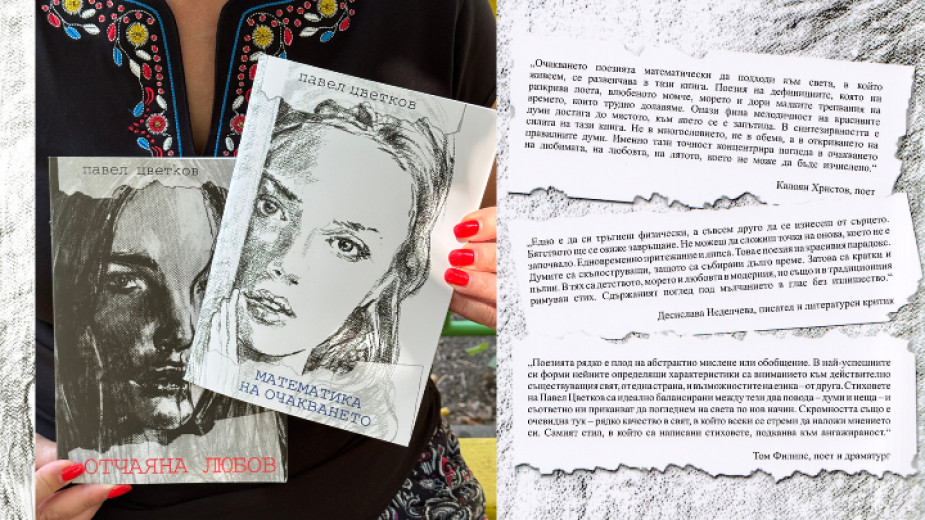 павел цветков
МАТЕМАТИКА
НА ОЧАКВАНЕТО
павел цветков
ОТЧАЯНА ЛЮБОВ
„Очакването поезията математически да подходи към света, в който
живеем, се развенчава в тази книга. Поезия на дефинициите, която ни
разкрива поета, влюбеното момче, морето и дори малките трепвания на
времето, които трудно долавяме. Онази фина мелодичност на красивите
думи достига до мястото, към се е запътила. В синтезираността е
силата на тази книга. Не в многословието, не в обема, а в откриването на
правилните думи. Именно тази точност концентрира погледа в очакването
на любимата, на любовта, на лятото, което не може да бъде изчислено.“
Калоян Христов, поет
„Едно е да си тръгнеш физически, а съвсем друго да се изнесеш от сърцето.
Бягството ще се окаже завръщане. Не можеш да сложиш точка на онова, което не е
започвало. Едновременно притежание и липса. Това е поезия на красивия парадокс.
Думите са скъпоструващи, защото са събирани дълго време. Затова са кратки и
пълни. В тях са детството, морето и любовта в модерния, но също и в традиционния
римуван стих. Сдържаният поглед под мълчанието в глас без излишество.“
Десислава Неделчева, писател и литературен критик
„Поезията рядко е плод на абстрактно мислене или обобщение. В най-успешните
си форми нейните определящи характеристики са вниманието към действително
съществуващия свят, от една страна, и възможностите на езика – от друга. Стиховете
на Павел Цветков са идеално балансирани между тези два повода – думи и неща – и
съответно ни приканват да погледнем на света по нов начин. Скромността също е
очевидна тук – рядко качество в свят, в който всеки се стреми да наложи мнението
си. Самият стил, в който са написани стиховете, подканва към ангажираност.“
Том Филипс, поет и драматург